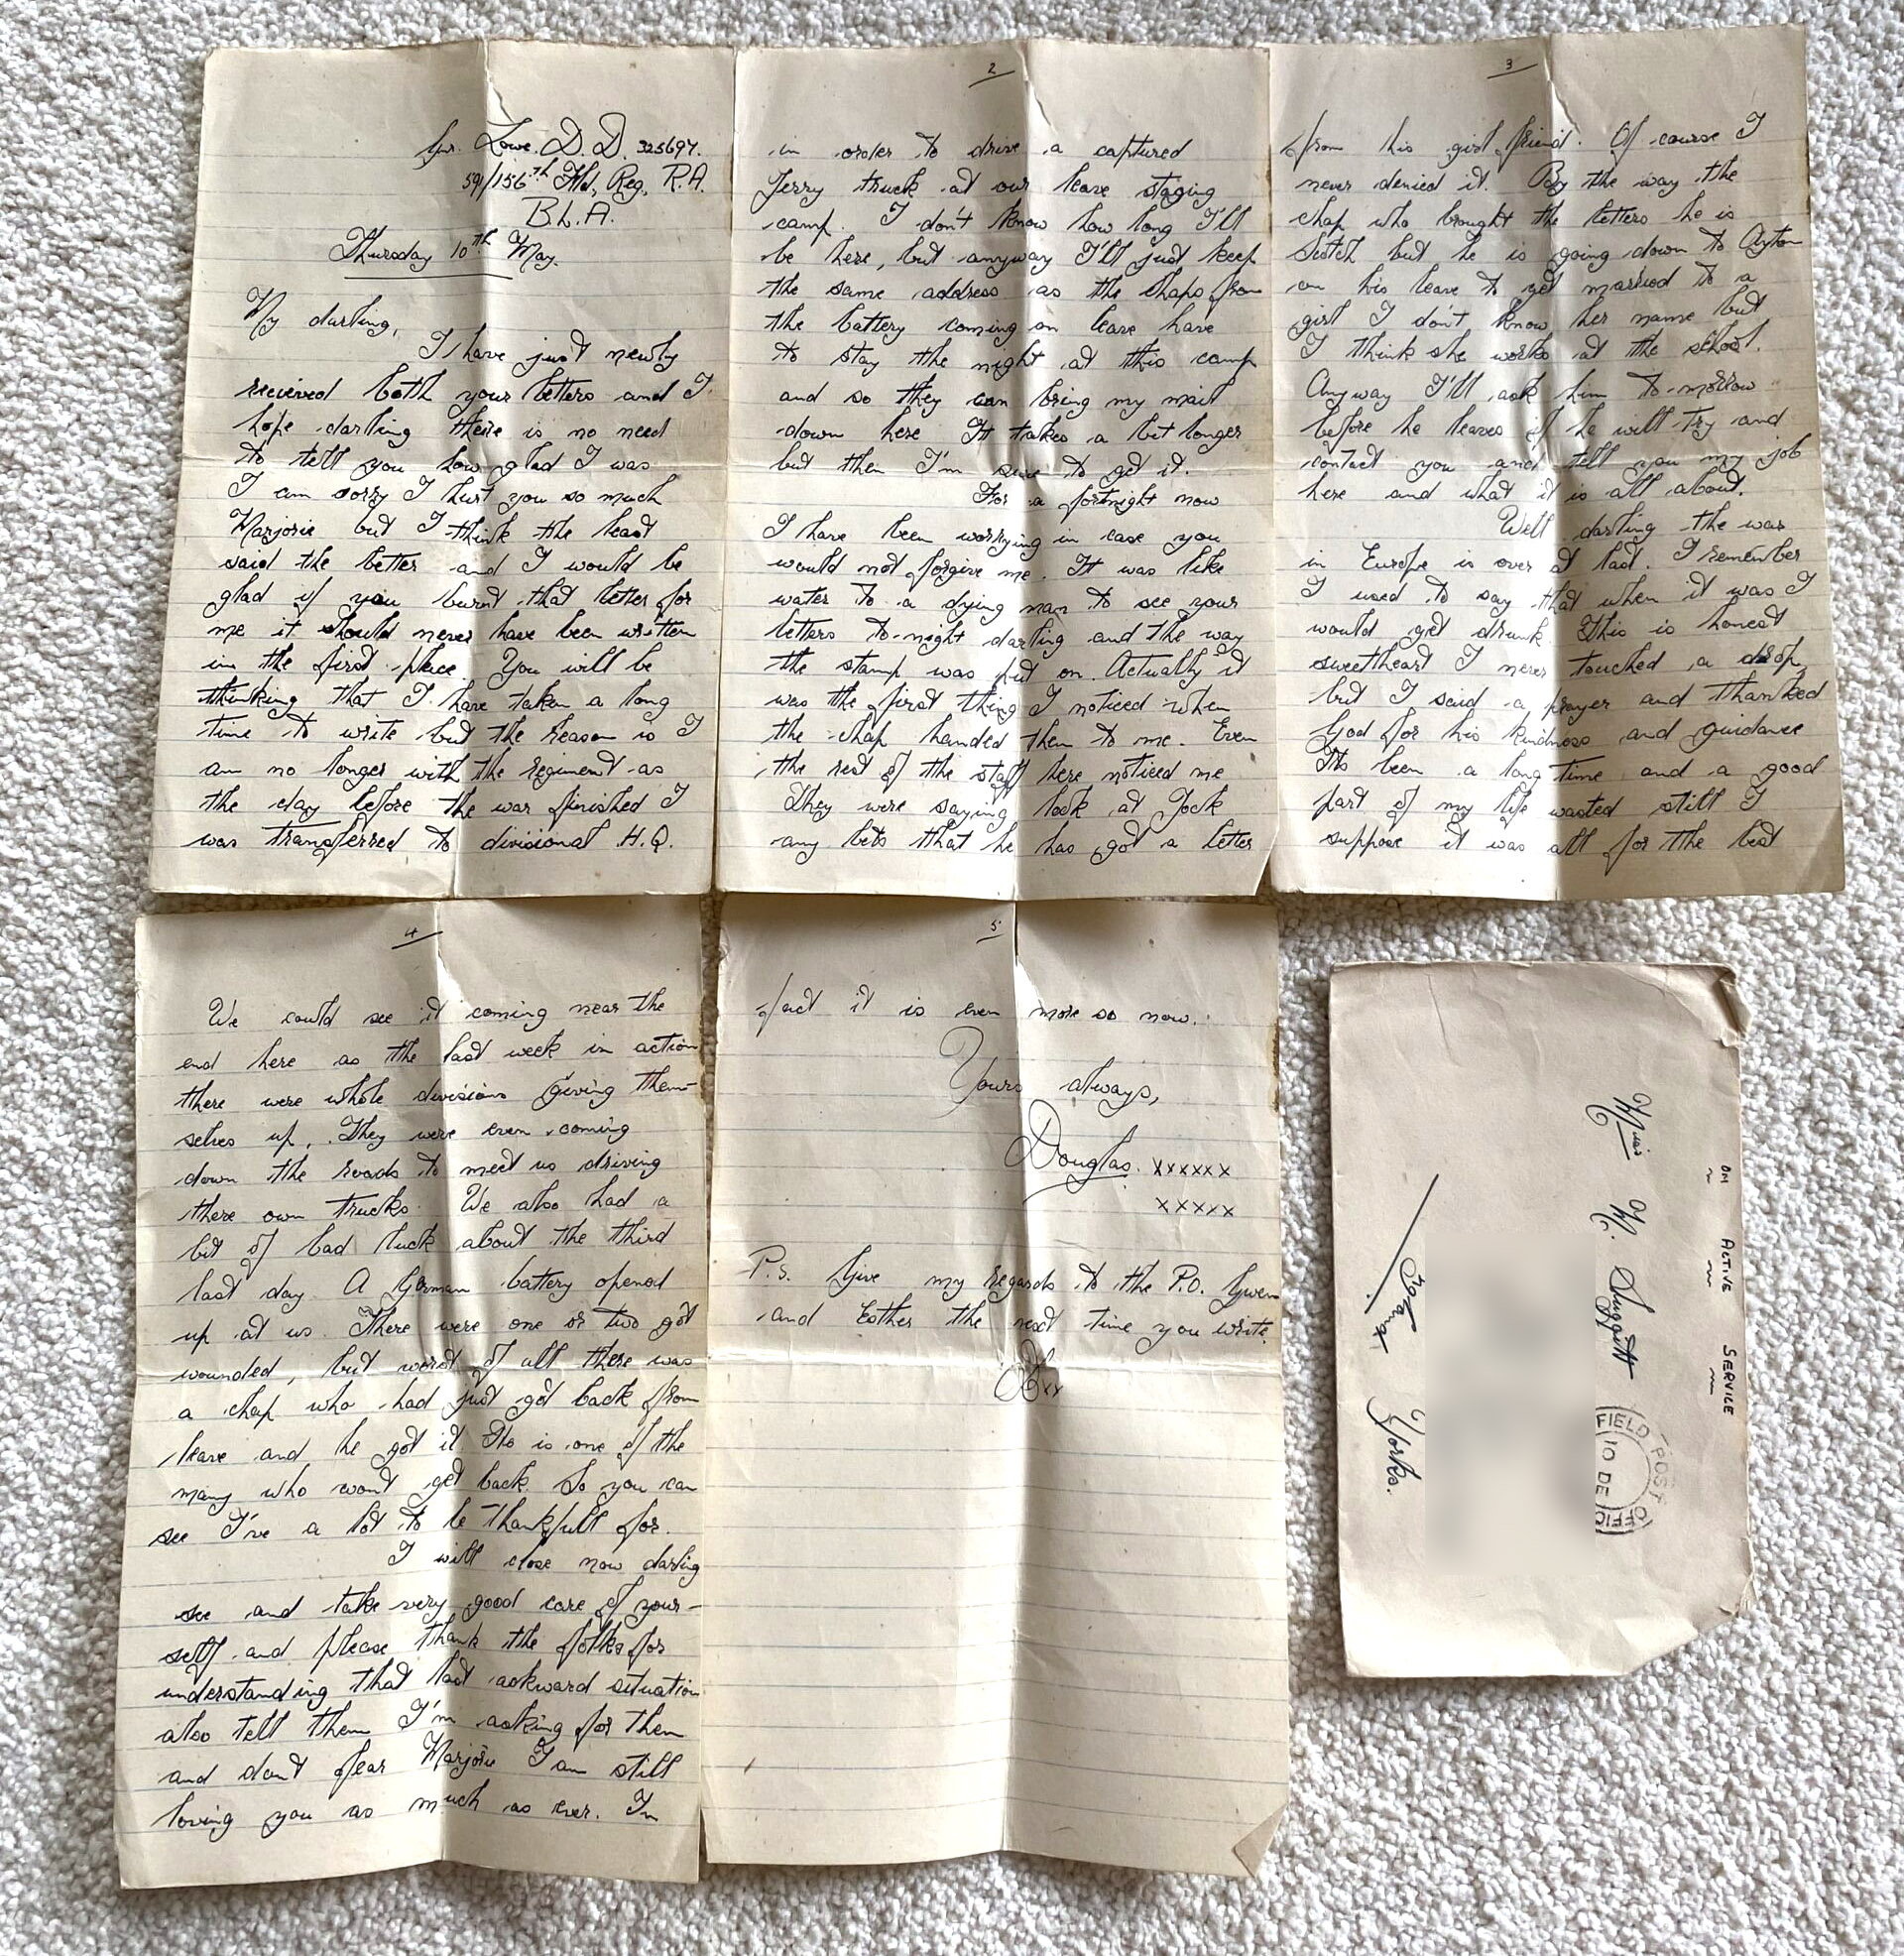 Gnr. Lowe. D. D. 325697.
591/156th Fld, Reg, R.A.
B.L.A.
Thursday 10th May.
My darling,
I have just newly
recieved both your letters and I
hope darling there is no need
to tell you how glad I was
I am sorry I hurt you so much
Marjorie but I think the least
said the better and I would be
glad if you burnt that letter for
me it should never have been written
in the first place. You will be
thinking that I have taken a long
time to write but the reason is I
am no longer with the regiment as
the day before the war finished I
was transferred to divisional H.Q.
2
in order to drive a captured
Jerry truck at our leave staging
camp. I don't know how long I'll
be here, but anyway I'll just keep
the same address as the chaps from
the battery coming on leave have
to stay the night at this camp
and so they can bring my mail
down here It takes a bit longer
but then I'm sure to get it.
For a fortnight now
I have been worrying in case you
would not forgive me. It was like
water to a dying man to see your
letters to-night darling and the way
the stamp was put on. Actually it
was the first thing I noticed when
the chap handed them to me. Even
the rest of the staff here noticed me
They were saying look at Jock
any bets that he has got a letter
3
from his girl friend. Of course I
never denied it. By the way the
chap who brought the letters he is
Scotch but he is going down to Ayton
on his leave to get married to a
girl I don't know her name but
I think she works at the school.
Anyway I'll ask him to-morrow
before he leaves if he will try and
contact you and tell you my job
here and what it is all about.
Well darling the war
in Europe is over at last. I remember
I used to say that when it was I
would get drunk. This is honest
sweetheart I never touched a drop,
but I said a prayer and thanked
God for his kindness and guidance
Its been a long time and a good
part of my life wasted still I
suppose it was all for the best
4
We could see it coming near the
end here as the last week in action
there were whole divisions giving them-
selves up, They were even coming
down the roads to meet us driving
there own trucks. We also had a
bit of bad luck about the third
last day A German battery opened
up at us. There were one or two got
wounded, but worst of all there was
a chap who had just got back from
leave and he got it. He is one of the
many who wont get back. So you can
see I've a lot to be thankfull for.
I will close now darling
see and take very good care of your-
self and please thank the folks for
understanding that last ackward situation
also tell them I'm asking for them
and don't fear Marjorie I am still
loving you as much as ever. In
5
fact it is even more so now.
Yours always,
Douglas. xxxxxx
xxxxx
P.S. Give my regards to the P.O. Gwen
and Esther the next time you write.
xx
ON ACTIVE SERVICE
Miss M. Suggitt
Yorks.
England
FIELD POST OFFICE
10 DE